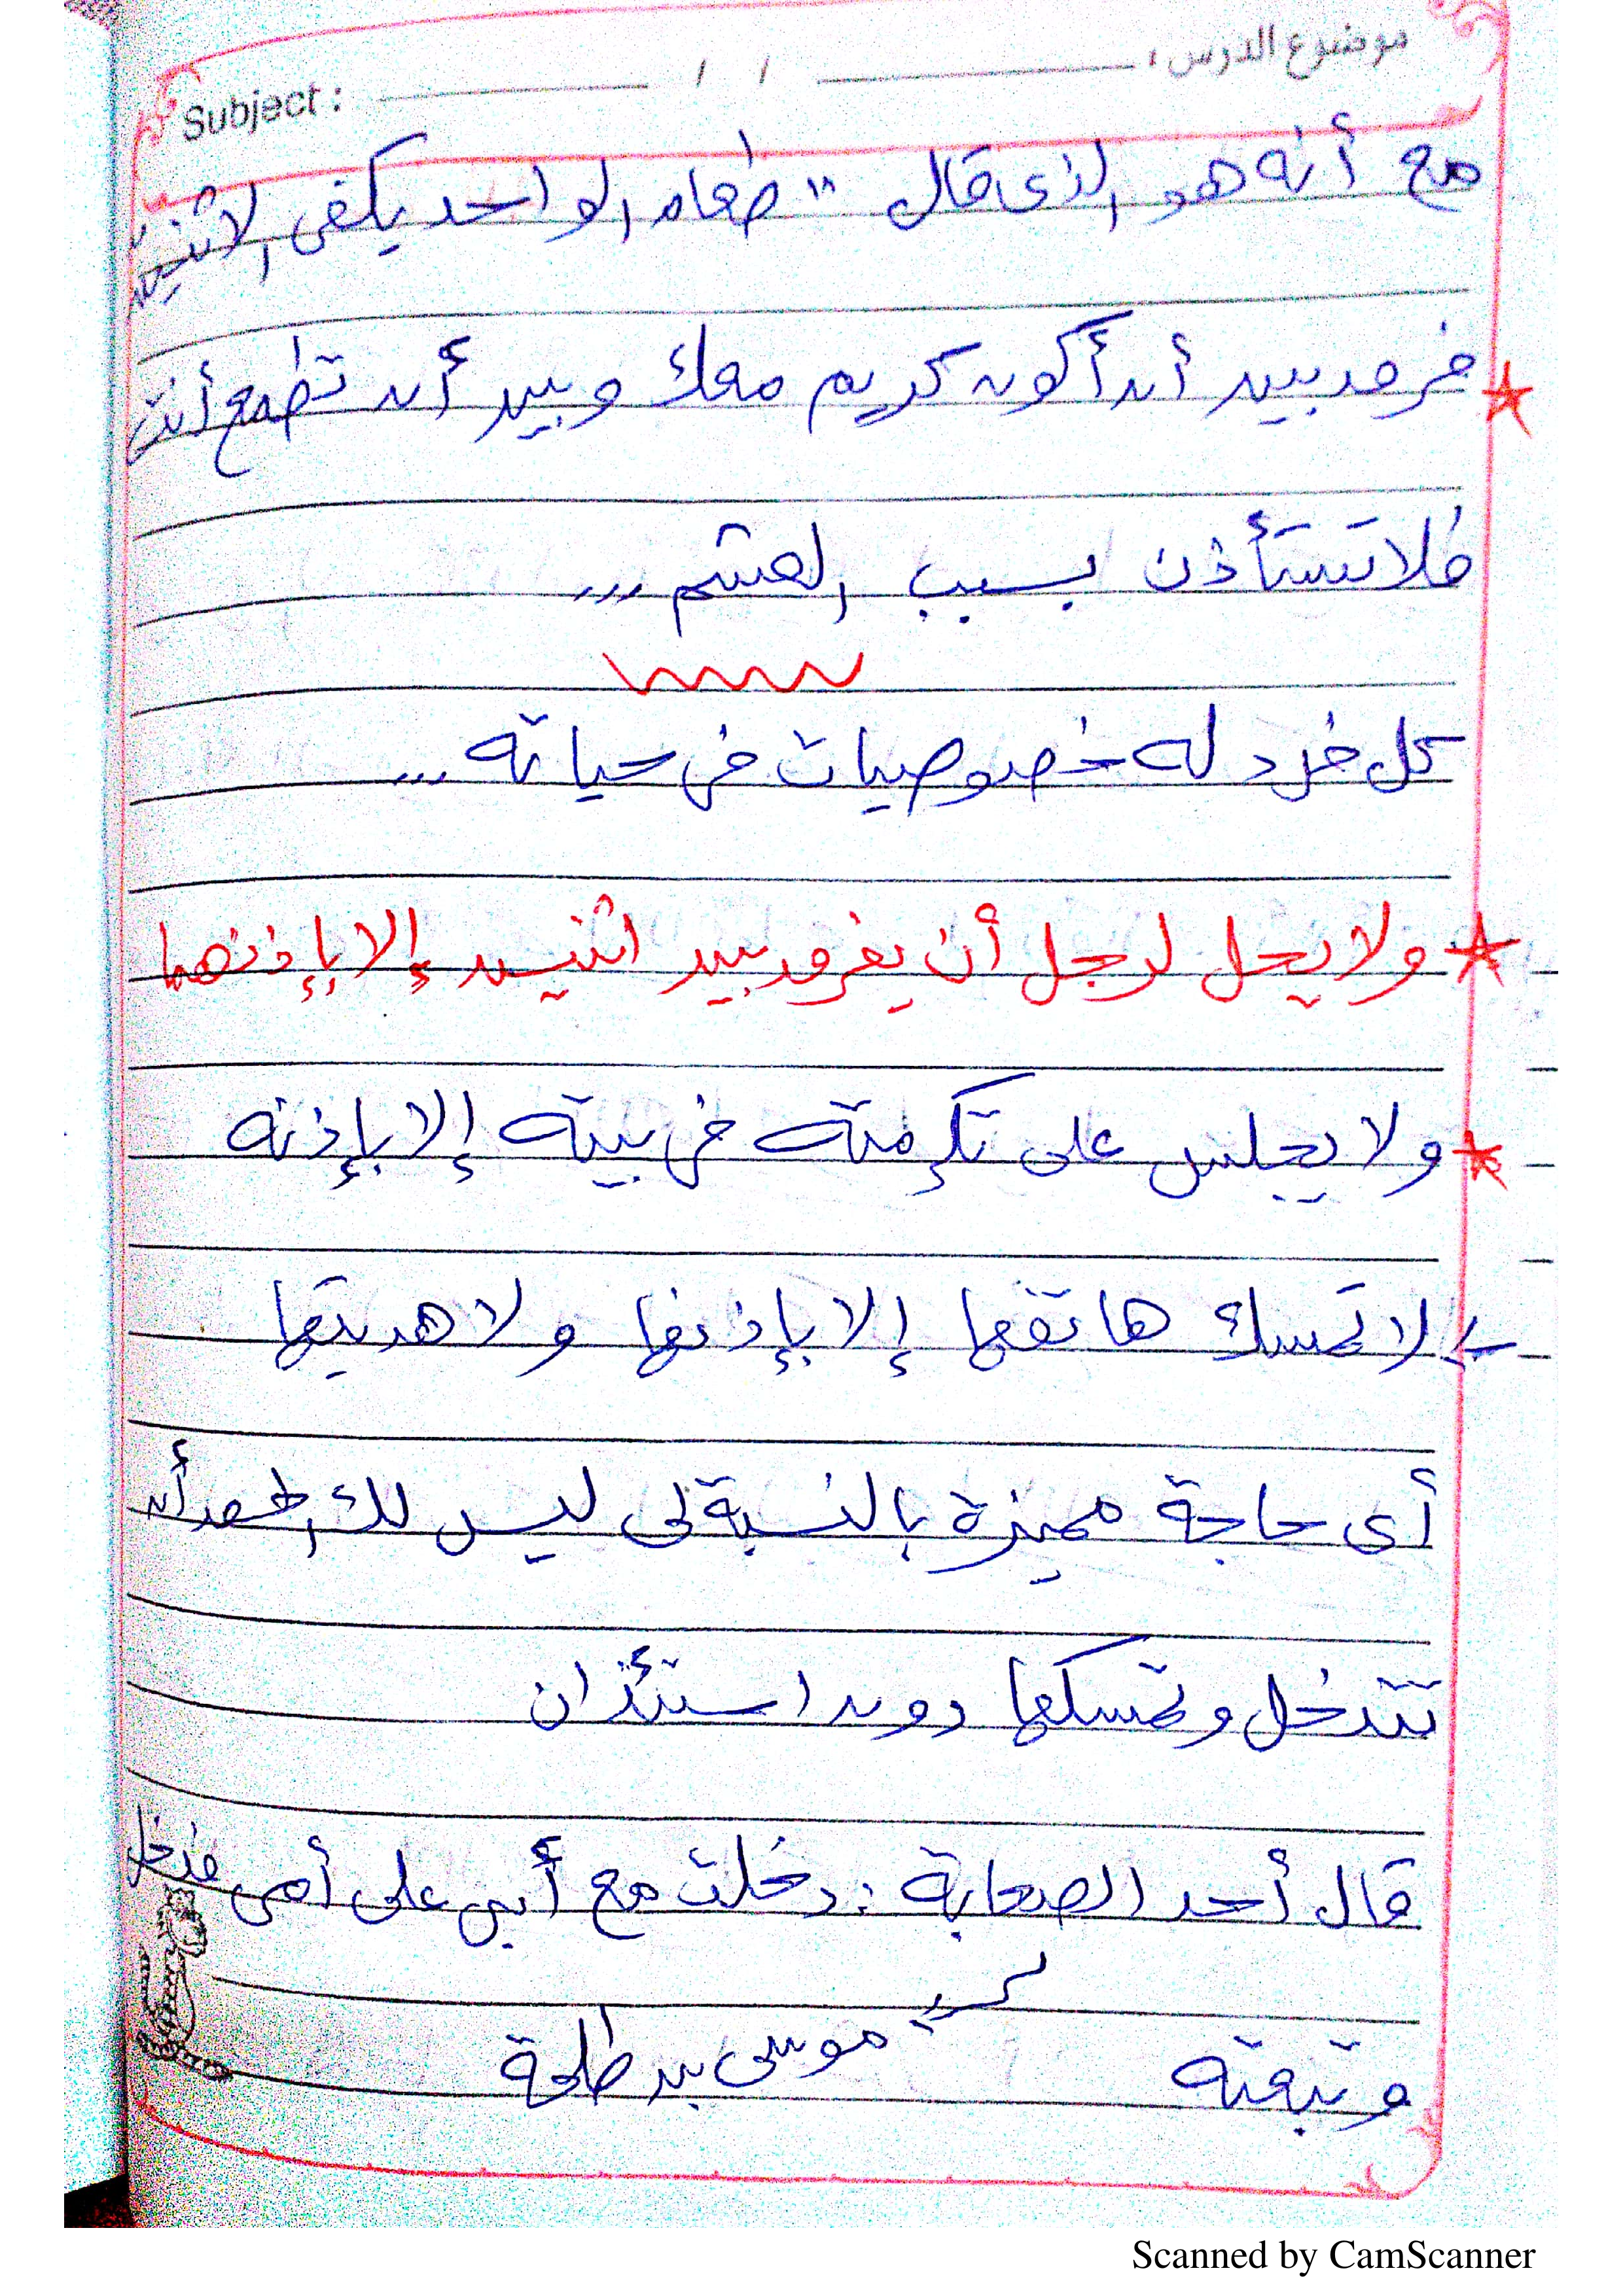 موضوع الدرس : / / Subject :
مع أنه هو الذى قال " طعام الواحد يكفى الاثنين
فرق بين أن أكون كريم معك وبين أن تطمع أنت
فلا تستأذن بسبب العشم ...
كل فرد له خصوصيات فى حياته ...
ولا يحل لرجل أن يفرق بين اثنين إلا بإذنهما
ولا يجلس على تكرمته فى بيته إلا بإذنه
لا تمسك هاتفها إلا بإذنها ولا هديتها
أى حاجة مميزة بالنسبة لى ليس لك الحق أن
تتدخل وتمسكها دون استئذان
قال أحد الصحابة : دخلت مع أبي على أمى فدخل
وتبعته
موسى بن طلحة
Scanned by CamScanner